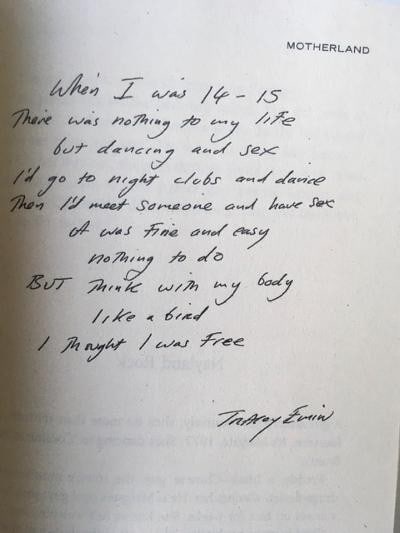 MOTHERLAND
When I was 14-15
There was nothing to my life
but dancing and sex
I'd go to night clubs and dance
Then I'd meet someone and have sex
It was fine and easy
nothing to do
BUT Think with my body
like a bird
I Thought I was Free
Tracey Emin
Nayland Rock